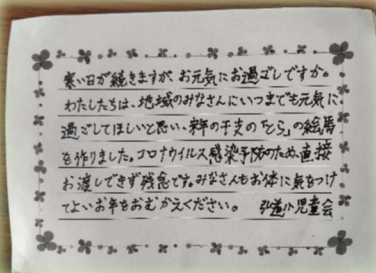 寒い日が続きますが、お元気にお過ごしですか。
わたしたちは、地域のみなさんにいつまでも元気に
過ごしてほしいと思い、来年の干支の「とら」の絵馬
を作りました。コロナウイルス感染予防のため、直接
お渡しできず残念です。みなさんもお体に気をつけ
てよいお年をおむかえください。 弘道小児童会